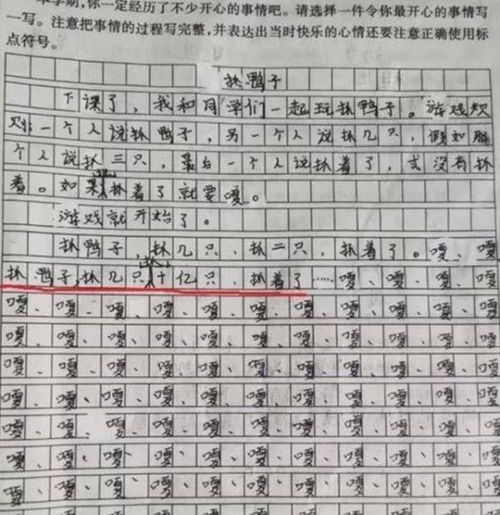 本学期,你一定经历了不少开心的事情吧。请选择一件令你最开心的事情写
一写。注意把事情的过程写完整,并表达出当时快乐的心情还要注意正确使用标
点符号。
抓鸭子
下课了，我和同学们一起玩抓鸭子。游戏规
则：一个人说抓鸭子，另一个人说抓几只，假如那
个人说抓三只，最后一个人说抓着了，或没有抓
着。如果抓着了就要嘎。
游戏就开始了。
抓鸭子，抓几只，抓二只，抓着了。嘎、嘎
抓鸭子,抓几只，抓十亿只，抓着了……嘎、嘎、嘎、嘎、
嘎、嘎、嘎、嘎、嘎、嘎、嘎、嘎、嘎、嘎、
嘎、嘎、嘎、嘎、嘎、嘎、嘎、嘎、嘎、嘎、
嘎、嘎、嘎、嘎、嘎、嘎、嘎、嘎、嘎、嘎、
嘎、嘎、嘎、嘎、嘎、嘎、嘎、嘎、嘎、嘎、
嘎、嘎、嘎、嘎、嘎、嘎、嘎、嘎、嘎、嘎、
嘎、嘎、嘎、嘎、嘎、嘎、嘎、嘎、嘎、嘎、
嘎、嘎、嘎、嘎、嘎、嘎、嘎、嘎、嘎、嘎、
嘎、嘎、嘎、嘎、嘎、嘎、嘎、嘎、嘎、嘎、